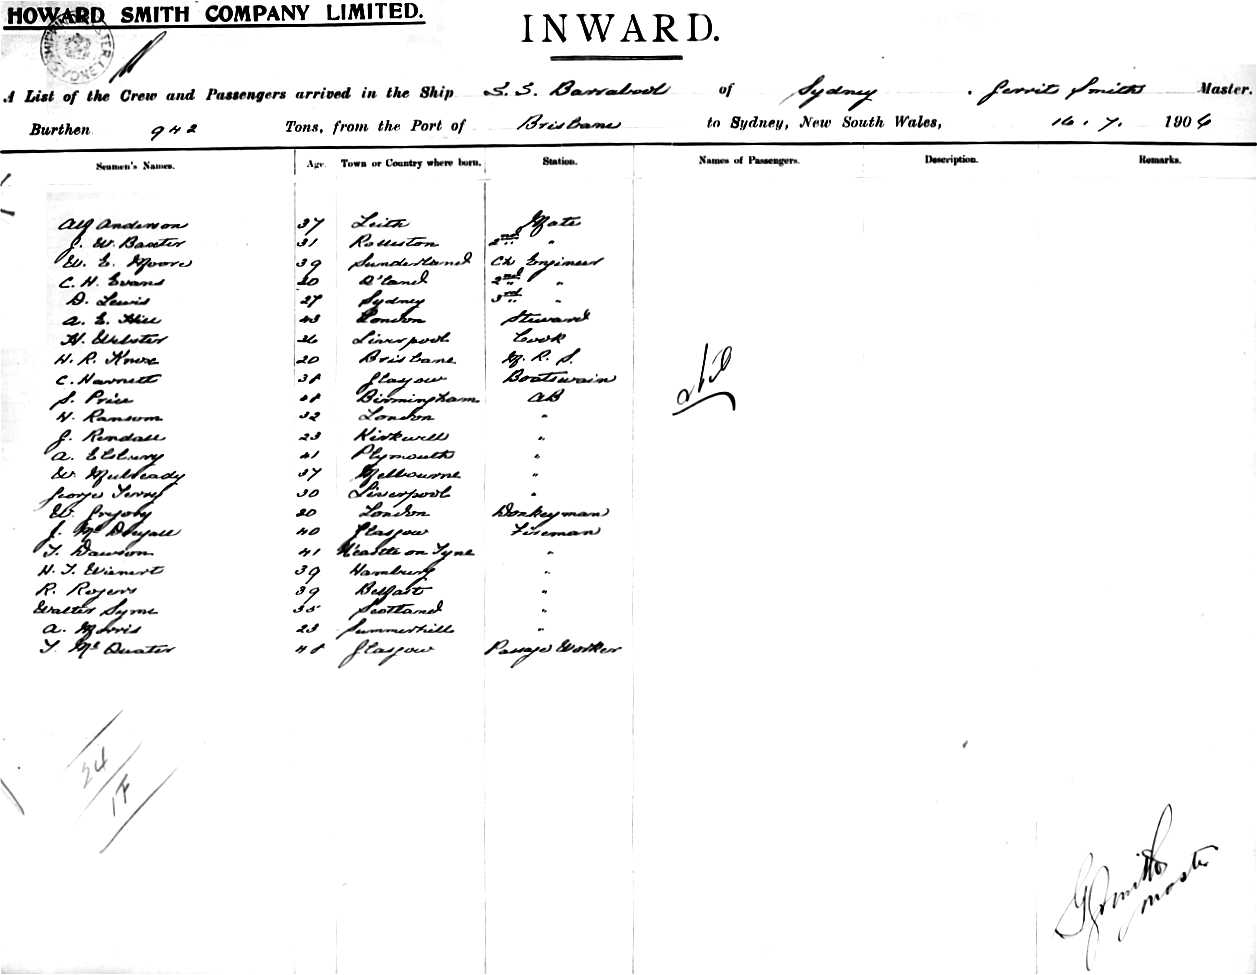 HOWARD SMITH COMPANY LIMITED.
INWARD.
A List of the Crew and Passengers arrived in the Ship S. S. Barrabool of Sydney . Gerrit Smith Master.
Burthen 942 Tons, from the Port of Brisbane to Sydney, New South Wales, 16 . 7 . 1906
Seamen's Names. Age Town or Country where born. Station. Names of Passengers. Description. Remarks.
Alf Anderson 37 Leith Mate
J. W. Baxter 31 Rolleston 2nd "
W. E. Moore 39 Sunderland Ch Engineer
C. H. Evans Q'land 2nd "
D. Lewis 27 Sydney 3rd "
A. E. Hill 43 London Steward
H. Webster 26 Liverpool Cook
H. R. Knox 20 Brisbane M. R. S.
C. Harnett 38 Glasgow Boatswain
S. Price 48 Birmingham AB
Nil
H. Ransom 32 London "
J. Rendall 23 Kirkwall "
A. Elsbury 41 Plymouth "
W. Mulready 37 Melbourne "
George Terry 30 Liverpool "
W. London Donkeyman
J. Mc 40 Glasgow Fireman
T. Dawson 41 N'castle on Tyne "
H. T. Wienert 39 Hamburg "
R. Rogers 39 Belfast "
Walter Syme 35 Scotland "
A. Morris 23 Summerhill "
T. Mc Quater 48 Glasgow Passage Worker
24
1F
G Smith
Master